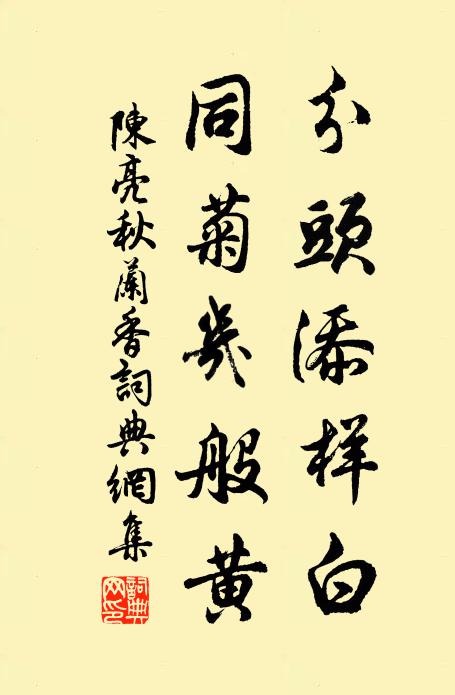 分頭添样白
同菊幾般黄
陳亮秋蘭香詞典網集
詞典網印